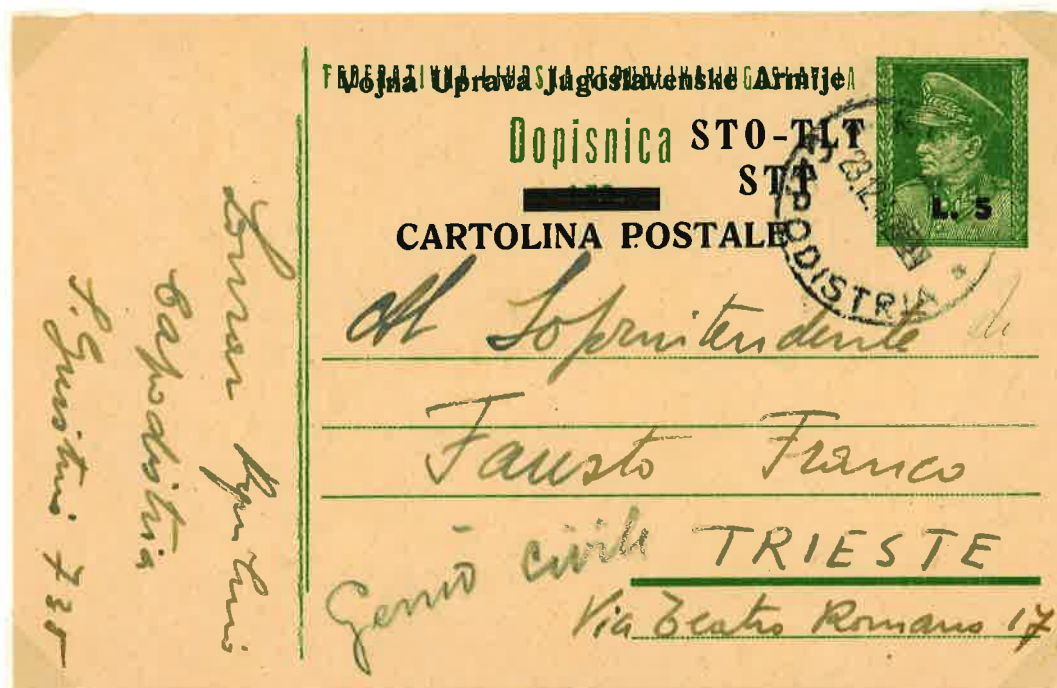 FEDERATIVNA LJUDSKA REPUBLIKA JUGOSLAVIJA
Vojna Uprava Jugoslavenske Armije
Dopisnica STO-TLT
STT
CARTOLINA POSTALE
L. 5
CAPODISTRIA
23.12.
Al Soprintendente
Fausto Franco
Genio civile TRIESTE
Via Teatro Romano 17
Capodistria